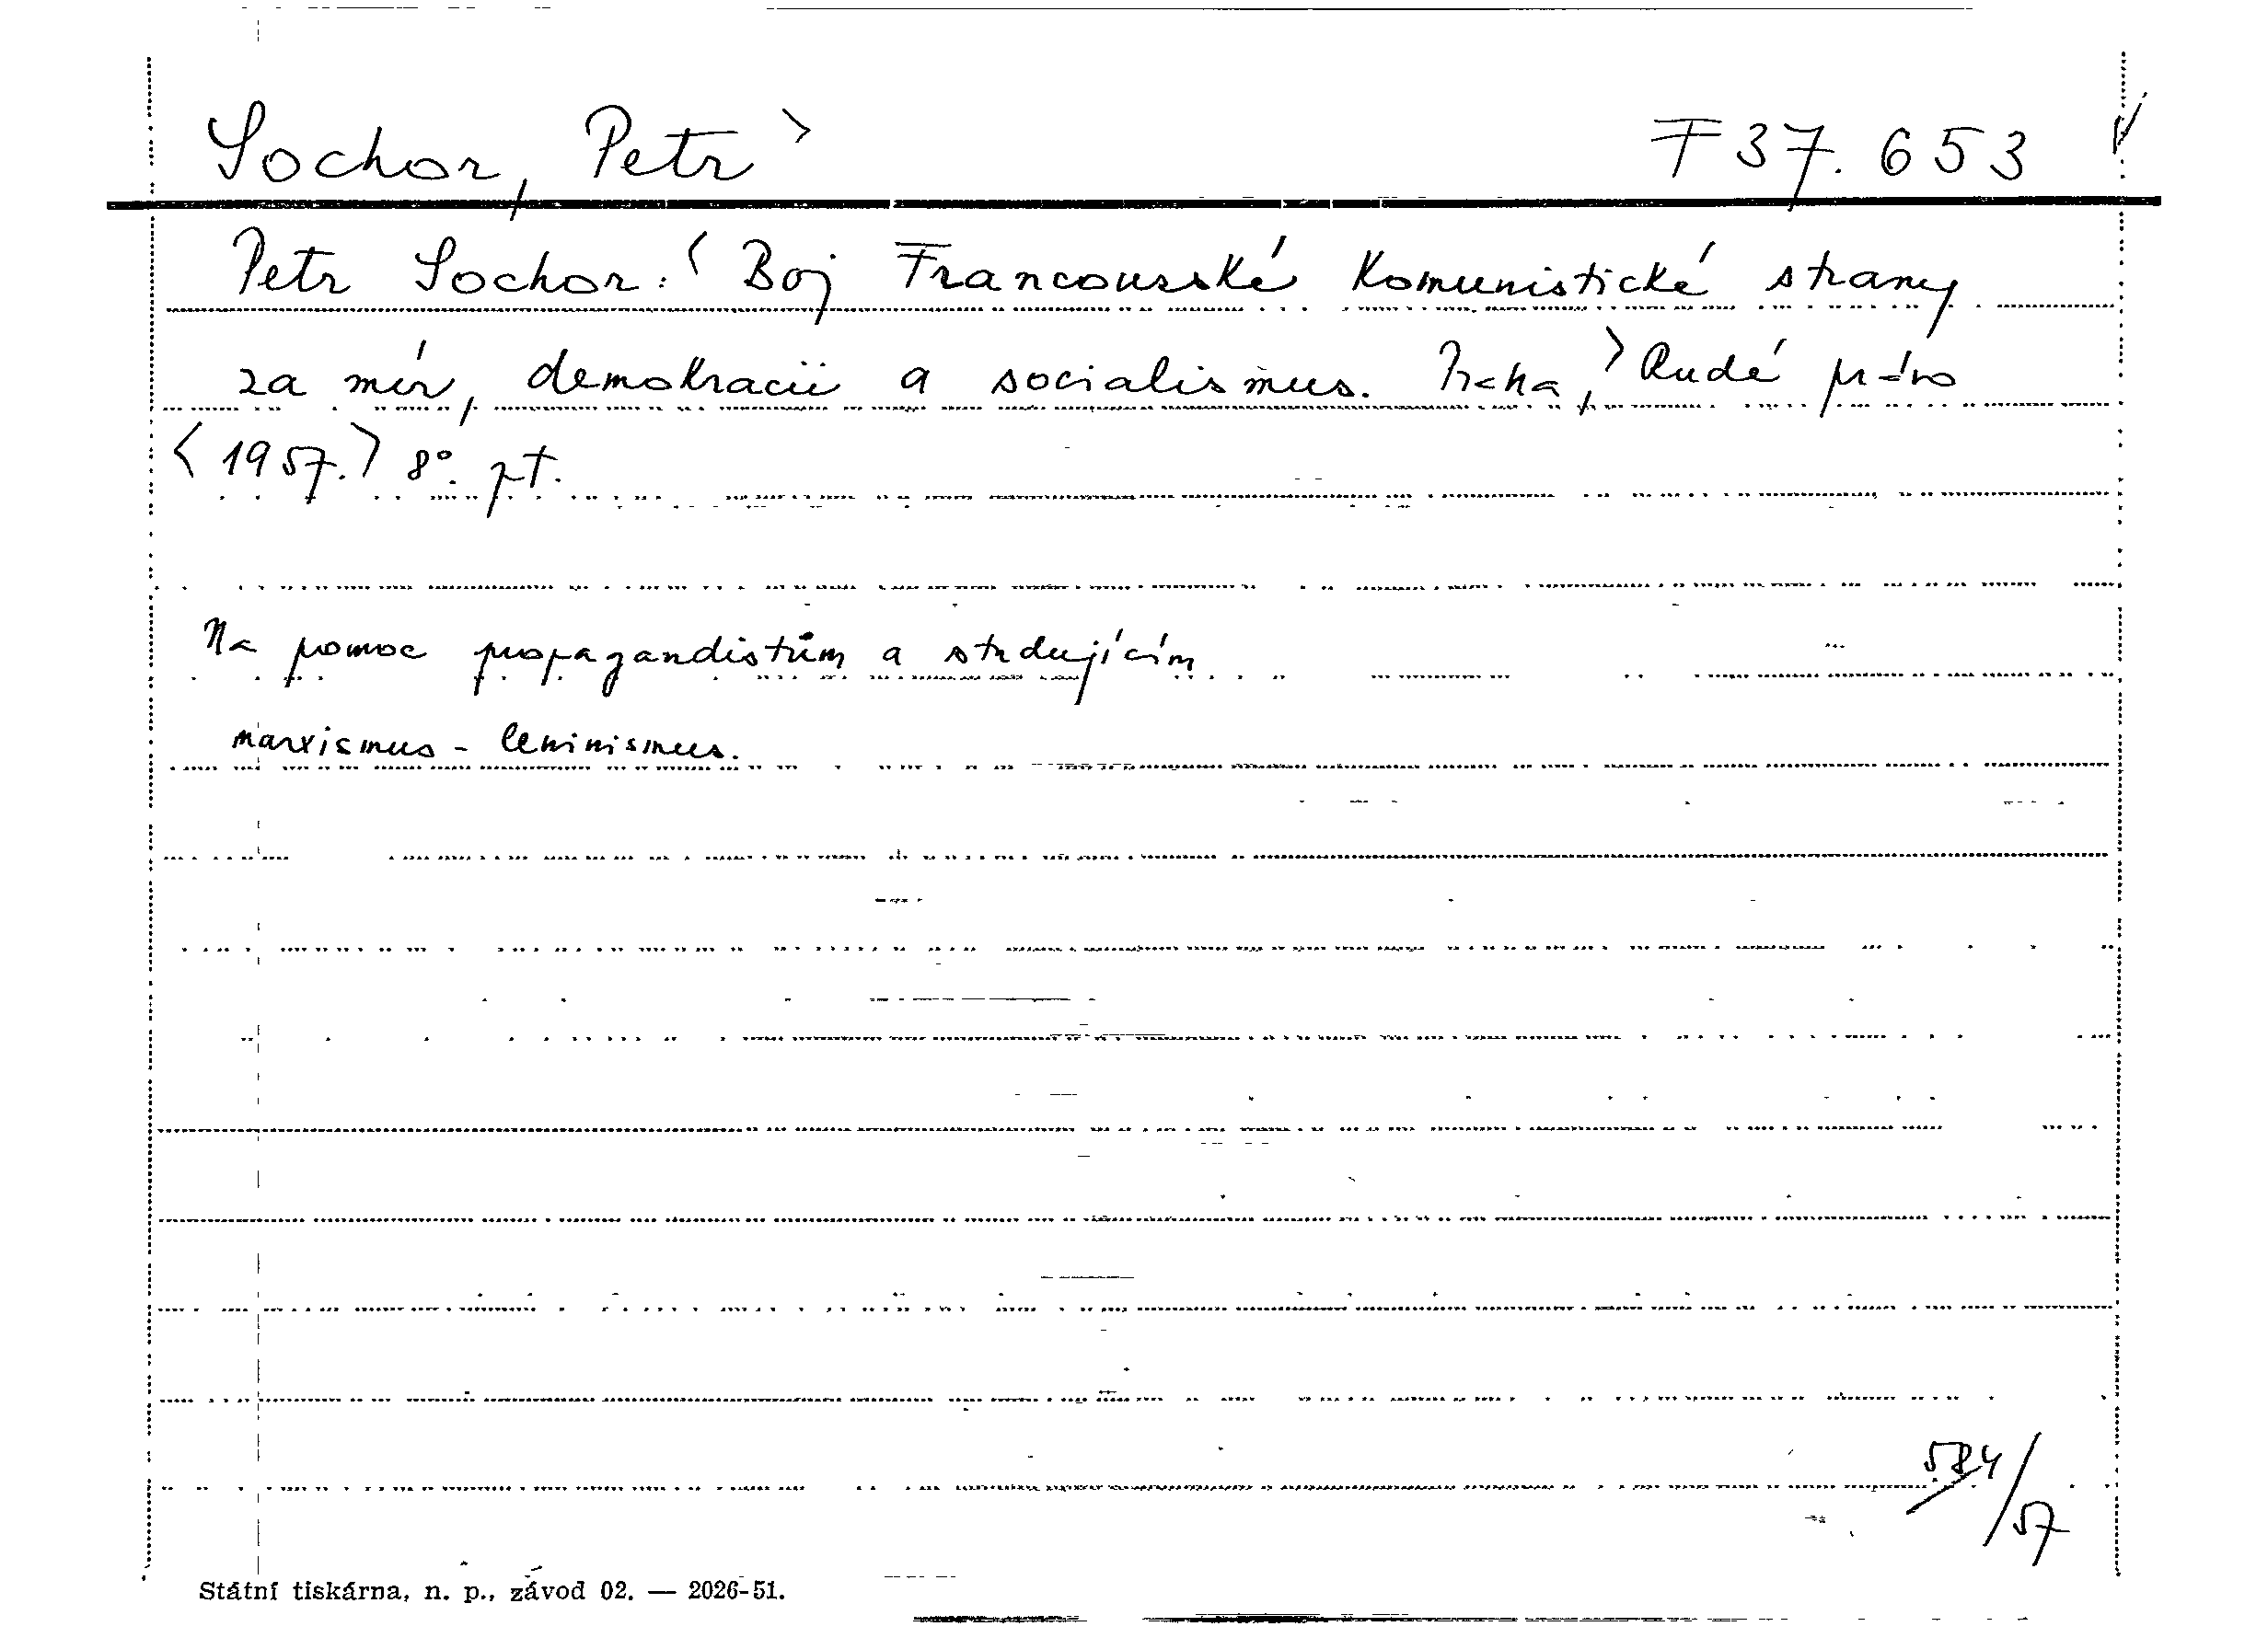 Sochor, Petr > F 37.653
Petr Sochor: < Boj Francouzské Komunistické strany
za mír, demokracii a socialismus. Praha, > Rudé právo
< 1957. > 8°.
Na pomoc propagandistům a studujícím
marxismus - leninismus.
584/57
Státní tiskárna, n. p., závod 02. — 2026-51.